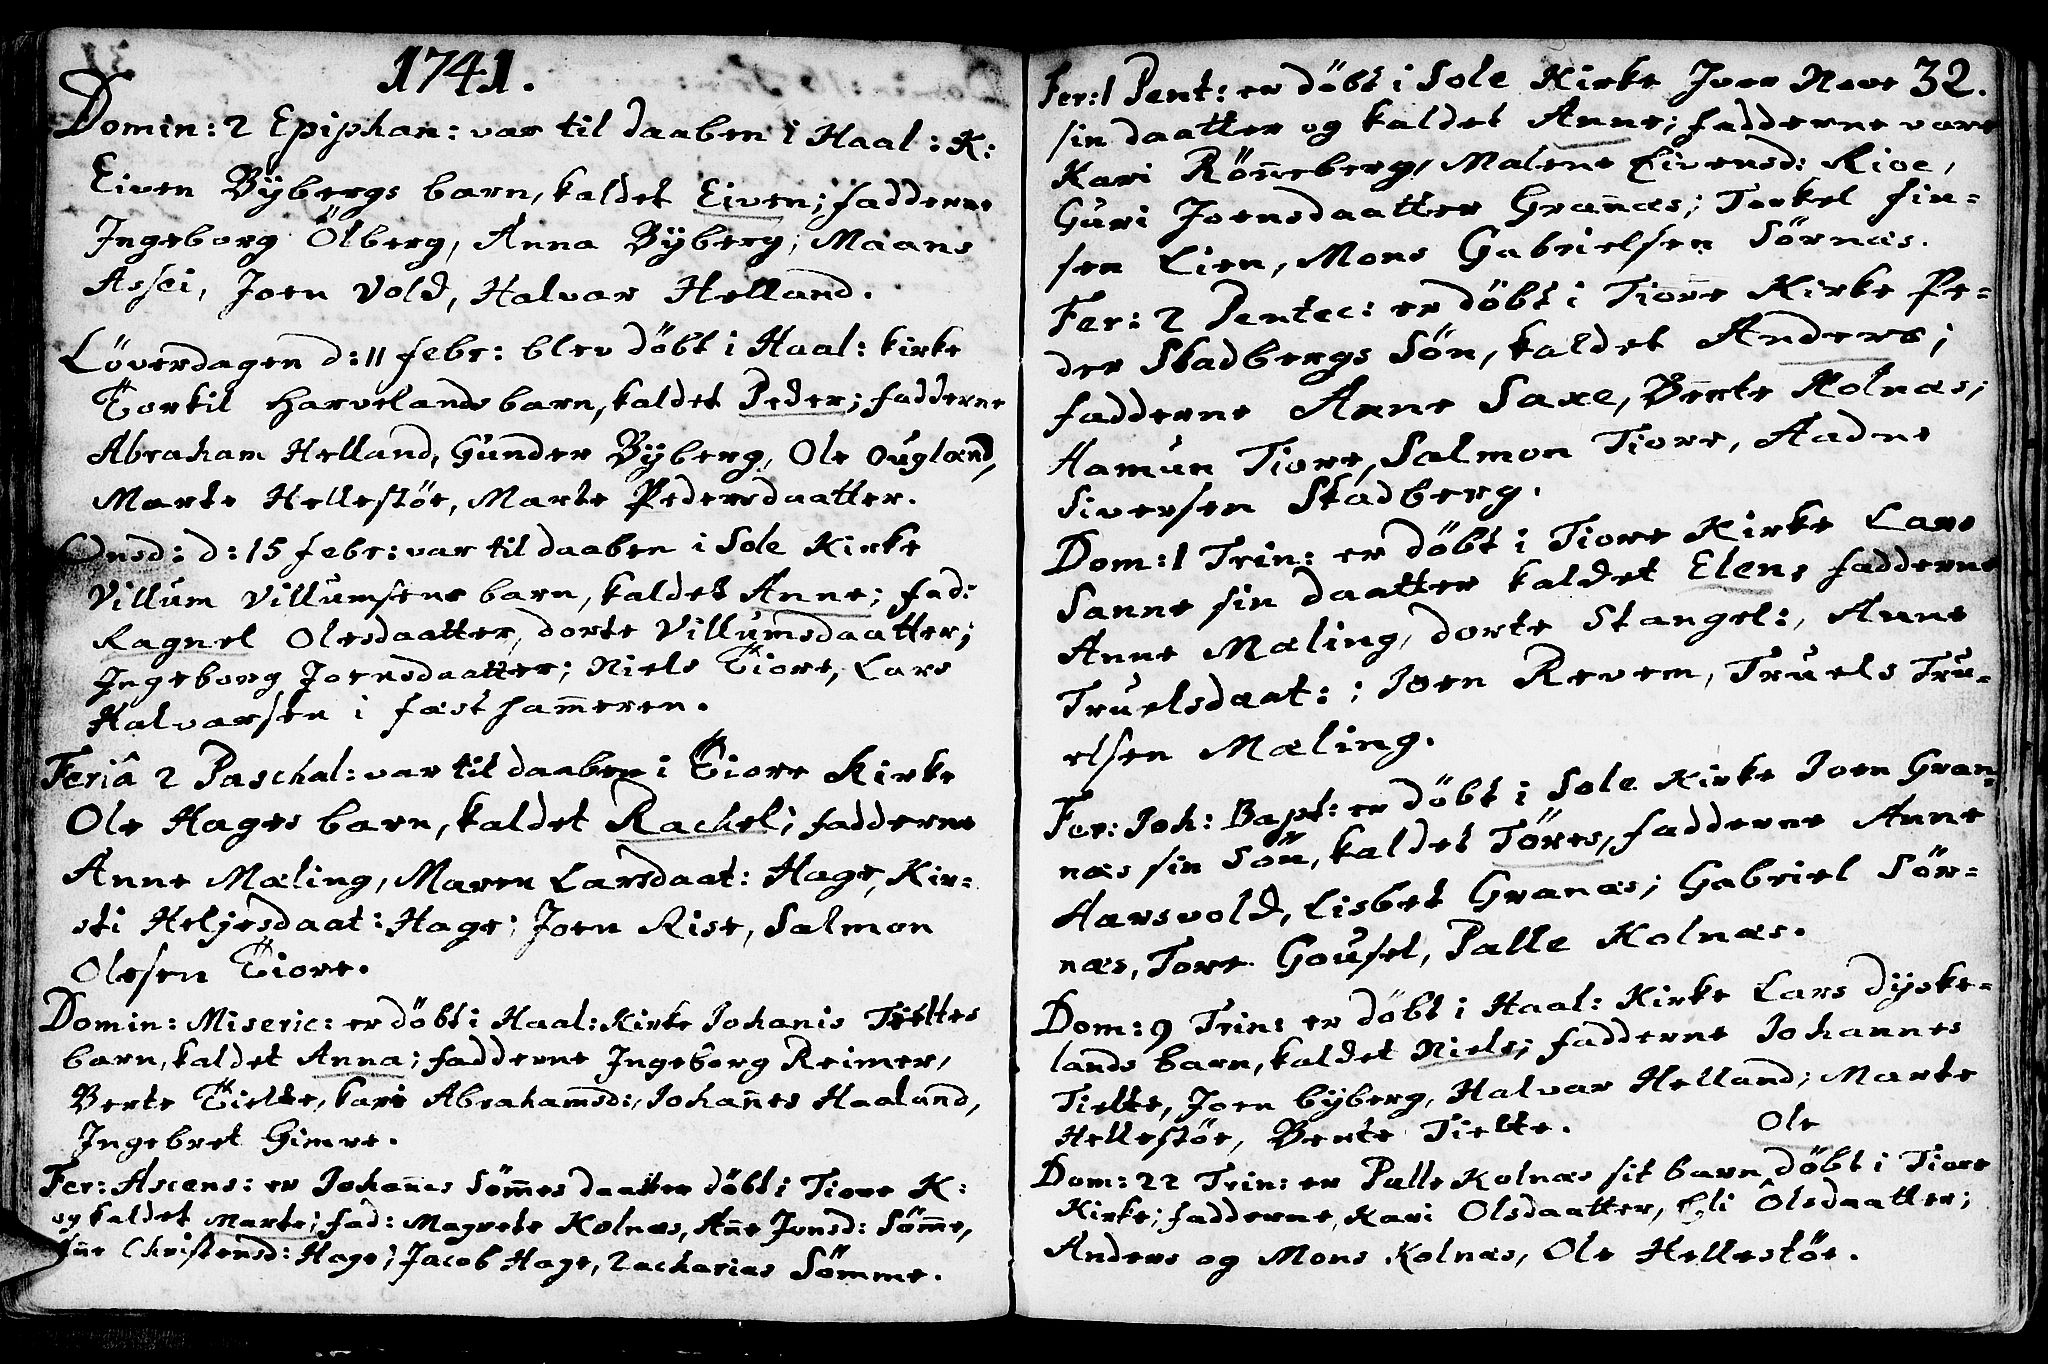 1741.
Domin: 2 Epiphan: var til daaben i Haal: K:
Eiven Bÿbergs barn, kaldet Eiven; fadderne
Ingeborg Ölberg, Anna Bÿberg; Maans
Assei, Joen Vold, Halvar Helland.
Löverdagen d: 11 febr: blev döbt i Haal: kirke
Torkil Harvelands barn, kaldet Peder; fadderne
Abraham Helland, Gunder Bÿberg, Ole Ougland,
Marte Hellestöe, Marte Pedersdaatter.
Onsd: d: 15 febr: var til daaben i Sole Kirke
Villum Villumsens barn, kaldet Anne; fad:
Ragnel Olesdaatter, dorte Villumsdaatter;
Ingeborg Joensdaatter; Niels Tiore, Lars
Halvarsen i fast ham̄eren.
Feriâ 2 Paschal: var til daaben i Tiore Kirke
Ole Hages barn, kaldet Rachel; fadderne
Anne Mæling, Maren Larsdaat: Hage, Kir=
sti Heljesdaat: Hage; Joen Rise, Salmon
Olesen Tiore.
Domin: Miseric: er döbt i Haal: Kirke Johanis Tieltes
barn, kaldet Anna; fadderne Ingeborg Reimer,
Berte Tielte, kari Abrahamsd:, Johan̄es Haaland,
Ingebret Gimre.
Fer: Ascens: er Johan̄es Söm̄es daatter döbt i Tiore K:
og kaldet Marte; fad: Magrete Kolnæs, An̄e Jonsd: Söm̄e,
An̄e Christensd: Hage; Jacob Hage, Zacharias Sömme.
Fer: 1 Pent: er döbt i Sole Kirke Iver Nore 32.
sin daatter og kaldet Anne; fadderne vare
Kari Rön̄eberg, Malene Eivensd: Rioe,
Guri Joensdaatter Gran̄æs; Torkel fin=
sen Lien, Mons Gabrielsen Sörnæs.
Fer: 2 Pentec: er döbt i Tiore Kirke Pe=
der Stadbergs Sön, kaldet Anders;
fadderne Anne Saxe, Bente Kolnæs;
Hamun Tiore, Salmon Tiore, Aadne
Siversen Stadberg.
Dom: 1 Trin: er döbt i Tiore Kirke Lars
Sanne sin daatter kaldet Elens fadderne
Anne Mæling, dorte Stangel:, Anne
Truelsdaat: ; Joen Revem, Truels Tru=
elsen Mæling.
Fer: Joh: Bapt: er döbt i Sole Kirke Joen Gran=
næs sin Sön, kaldet Töres, fadderne Anne
Harsvold, Lisbet Granæs; Gabriel Sör=
næs, Tore Gousel, Palle Kolnæs.
Dom: 9 Trin: er döbt i Haal: Kirke Lars dÿske=
lands barn, kaldet Niels; fadderne Johannes
Tielte, Joen bÿberg, Halvar Helland; Marte
Hellestöe, Bente Tielte.
Ole
Dom: 22 Trin: er Palle Kolnæs sit barn döbt i Tiore
Kirke; fadderne Kari Olsdaatter, Eli Olsdaatter;
Anders og Mons Kolnæs, Ole Hellestöe.